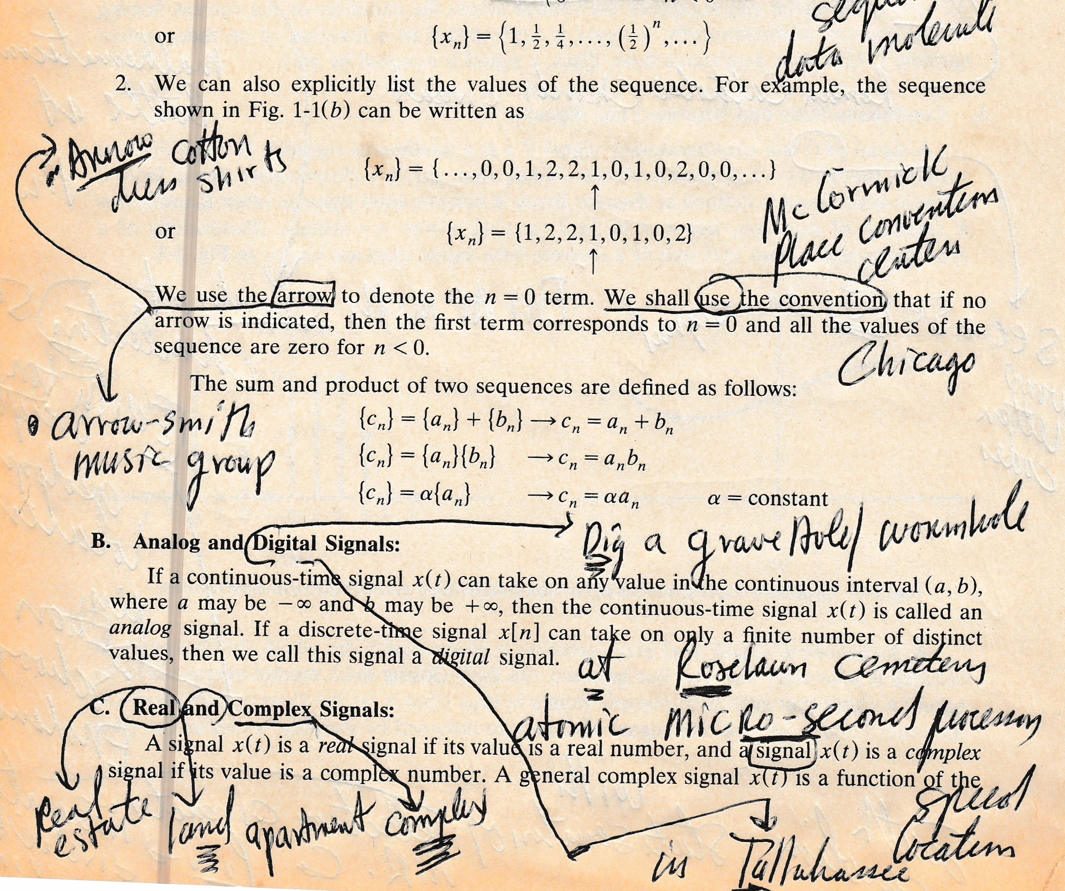 sequ
data molecule
or {xₙ} = {1, ½, ¼, ..., (½)ⁿ, ...}
2. We can also explicitly list the values of the sequence. For example, the sequence
shown in Fig. 1-1(b) can be written as
Arrow cotton
dress shirts
{xₙ} = {...,0,0,1,2,2,1,0,1,0,2,0,0,...}
↑
McCormick
Place convention
center
or {xₙ} = {1,2,2,1,0,1,0,2}
↑
We use the arrow to denote the n = 0 term. We shall use the convention that if no
arrow is indicated, then the first term corresponds to n = 0 and all the values of the
sequence are zero for n < 0.
Chicago
The sum and product of two sequences are defined as follows:
arrow-smith
music group
{cₙ} = {aₙ} + {bₙ} → cₙ = aₙ + bₙ
{cₙ} = {aₙ}{bₙ} → cₙ = aₙbₙ
{cₙ} = α{aₙ} → cₙ = αaₙ α = constant
Dig a grave Hole/ wormhole
B. Analog and Digital Signals:
If a continuous-time signal x(t) can take on any value in the continuous interval (a, b),
where a may be −∞ and b may be +∞, then the continuous-time signal x(t) is called an
analog signal. If a discrete-time signal x[n] can take on only a finite number of distinct
values, then we call this signal a digital signal.
at Roselawn Cemetery
C. Real and Complex Signals:
atomic micro-second processing
A signal x(t) is a real signal if its value is a real number, and a signal x(t) is a complex
signal if its value is a complex number. A general complex signal x(t) is a function of the
speed
Real
estate land apartment complex
location
in Tallahassee